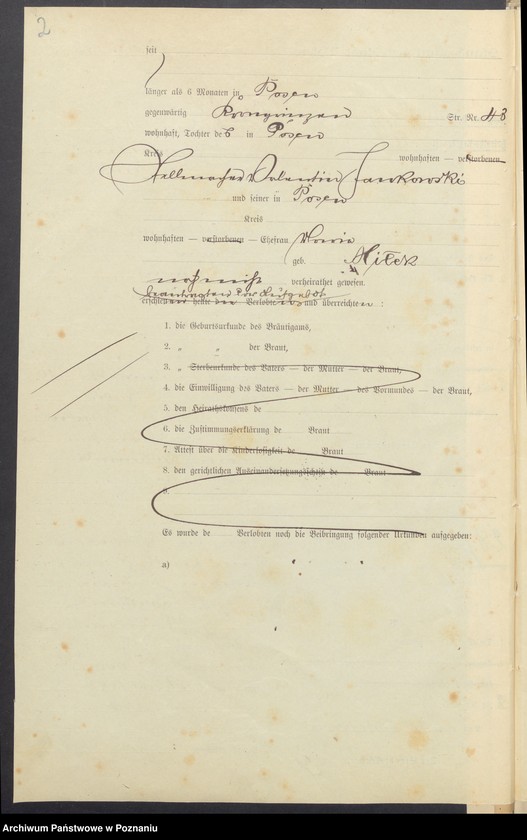 2
seit
länger als 6 Monaten in Posen
gegenwärtig Kronprinzen Str. Nr. 48
wohnhaft, Tochter des in Posen
Kreis wohnhaften — verstorbenen
Stellmacher Valentin Jankowski
und seiner in Posen
Kreis
wohnhaften — verstorbenen — Ehefrau Maria
geb. Hilek
noch nicht verheirathet gewesen.
beantragten das Aufgebot
erschienen heute der Verlobten und überreichten :
1. die Geburtsurkunde des Bräutigams,
2. „ „ der Braut,
3. „ Sterbeurkunde des Vaters — der Mutter — der Braut,
4. die Einwilligung des Vaters — der Mutter — des Vormundes — der Braut,
5. den Heirathskonsens de
6. die Zustimmungserklärung de Braut
7. Attest über die Kinderlosigkeit de Braut
8. den gerichtlichen Auseinandersetzungsschein de Braut
9.
Es wurde de Verlobten noch die Beibringung folgender Urkunden aufgegeben:
a)
Archiwum Państwowe w Poznaniu